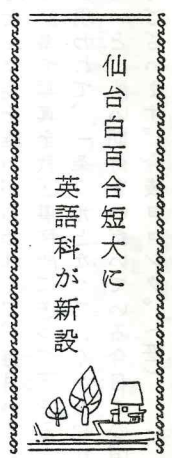 仙台白百合短大に
英語科が新設